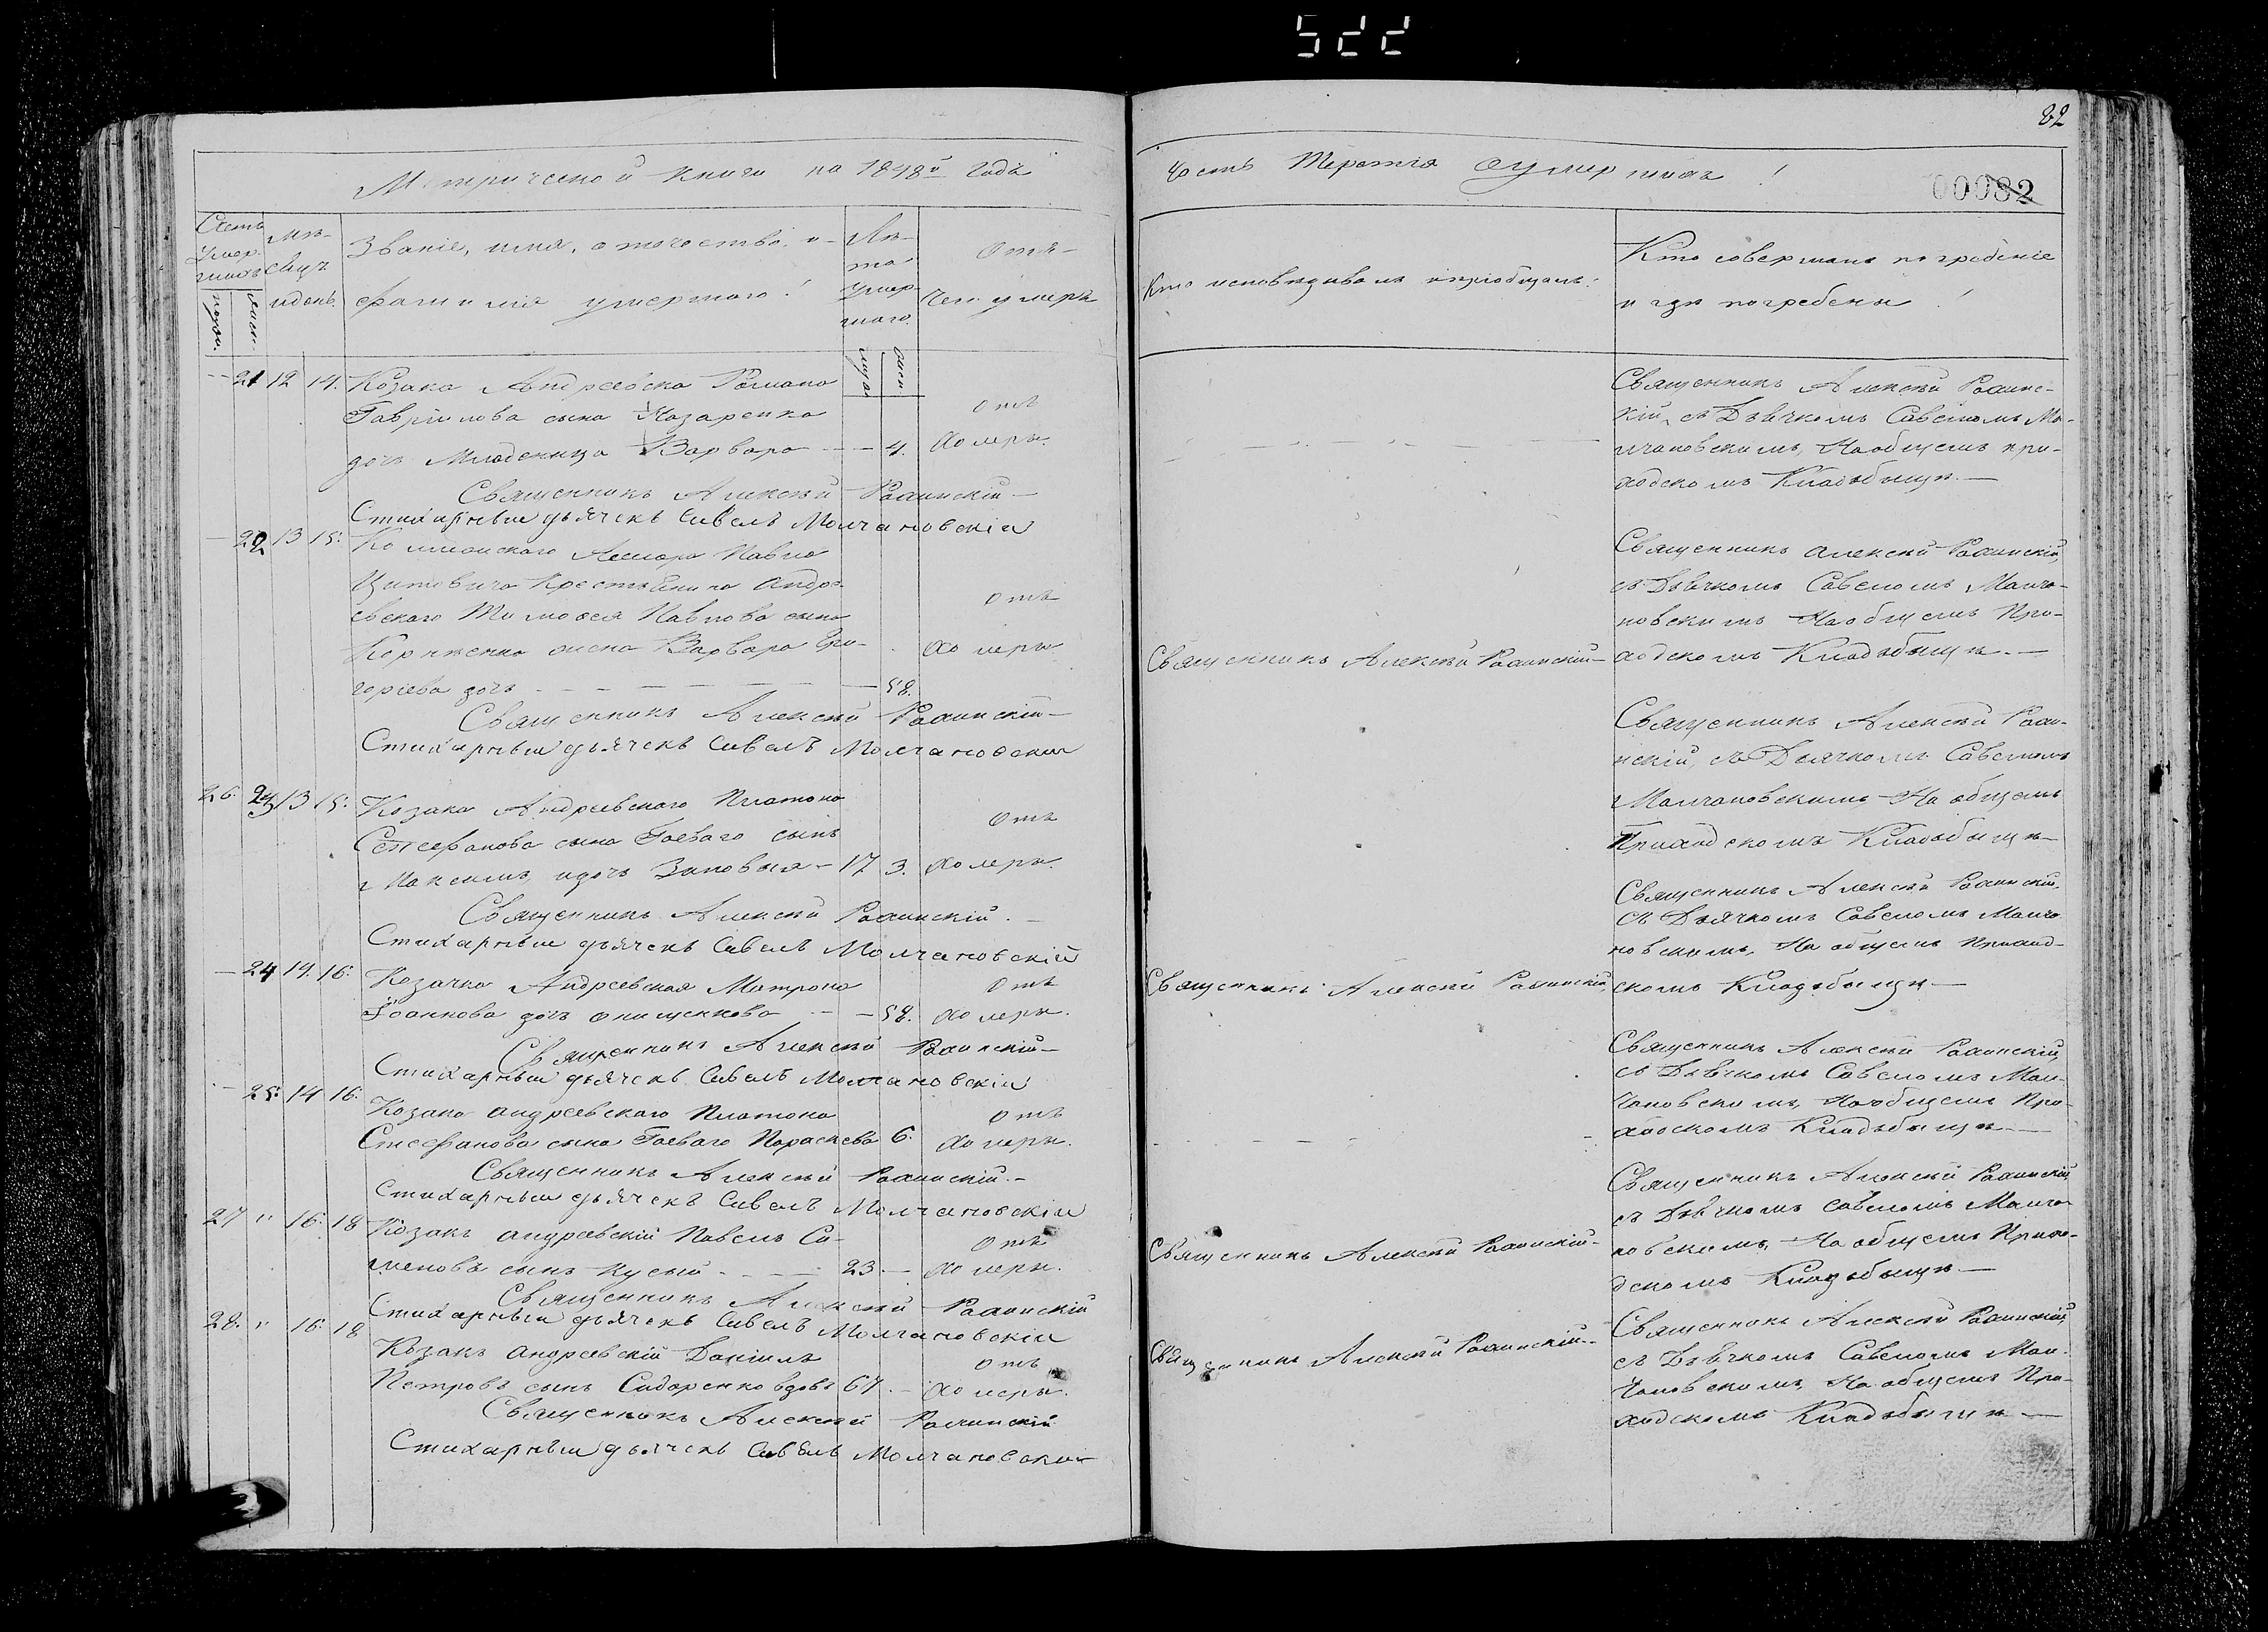 522
82
00082
Метрической книги на 1848й года
Часть Третія Оумершихъ!
Счетъ умершихъ
муж.
женс.
Мѣсяцъ и день.
Званіе, имя, отчество, и
фамилія умершаго!
Лѣта умершаго.
муж.
женс.
Отъ
чего умеръ
Кто исповѣдывалъ и пріобщалъ!
Кто совершалъ погребеніе
и гдѣ погребены!
21 12 14. Козака Андреевска Романа
Гавріилова сына Назаренка
дочь Младеница Варвара — 4.
отъ
холеры.
Священникъ Алексѣй
кій, съ Дьячкомъ Савеломъ Мо-
лчановскимъ, На общемъ при-
ходскомъ Кладбыщѣ.—
Священникъ Алексѣй
Стихарный дьячекъ Савелъ Молчановскій
22 13 15. Коллежскаго Павла
крестьянина Андре-
евскаго Тимофея Павлова сына
жена Варвара Гри-
горіева дочь — 58.
отъ
холеры
Священникъ Алексѣй
Священникъ Алексѣй
съ Дьячкомъ Савеломъ Молча-
новскимъ На общемъ При-
ходскомъ Кладбыщѣ.—
Священникъ Алексѣй
Стихарный дьячекъ Савелъ Молчановскій
26. 23 13 15. Козака Андреевскаго Платона
Стефанова сына Гаеваго сынъ
Максимъ, и дочь Зиновыя — 17 3.
отъ
холеры.
Священникъ Алексѣй
съ Дьячкомъ Савеломъ
Молчановскимъ На общемъ
Приходскомъ Кладбыщѣ—
Священникъ Алексѣй
Стихарный дьячекъ Савелъ Молчановскій
24 19. 16. Козачка Андреевская Матрона
Іоаннова дочь Онищенкова — 58.
отъ
холеры.
Священникъ Алексѣй
Священникъ Алексѣй
съ Дьячкомъ Савеломъ Молча
новскимъ, На общемъ Приход-
скомъ Кладбыщѣ—
Священникъ Алексѣй
Стихарный дьячекъ Савелъ Молчановскій
25. 14 16. Козака Андреевскаго Платона
Стефанова сына Гаеваго Параскева 6.
отъ
холеры.
Священникъ Алексѣй
съ Дьячкомъ Савеломъ Мол-
чановскимъ, На общемъ При-
ходскомъ Кладбыщѣ—
Священникъ Алексѣй
Стихарный дьячекъ Савелъ Молчановскій
27 " 16. 18 Козакъ Андреевскій Павелъ Си-
меновъ сынъ Кусый — 23 —
отъ
холеры.
Священникъ Алексѣй
Священникъ Алексѣй
съ Дьячкомъ Савеломъ Молча-
новскимъ, На общемъ Прихо-
дскомъ Кладбыщѣ—
Священникъ Алексѣй
Стихарный дьячекъ Савелъ Молчановскій
28. " 16. 18 Козакъ Андреевскій Даніилъ
Петровъ сынъ Сидоренко вдовъ 67. —
отъ
холеры.
Священникъ Алексѣй
Священникъ Алексѣй
съ Дьячкомъ Савеломъ Мол-
чановскимъ, На общемъ При-
ходскомъ Кладбыщѣ—
Священникъ Алексѣй
Стихарный дьячекъ Савелъ Молчановскій